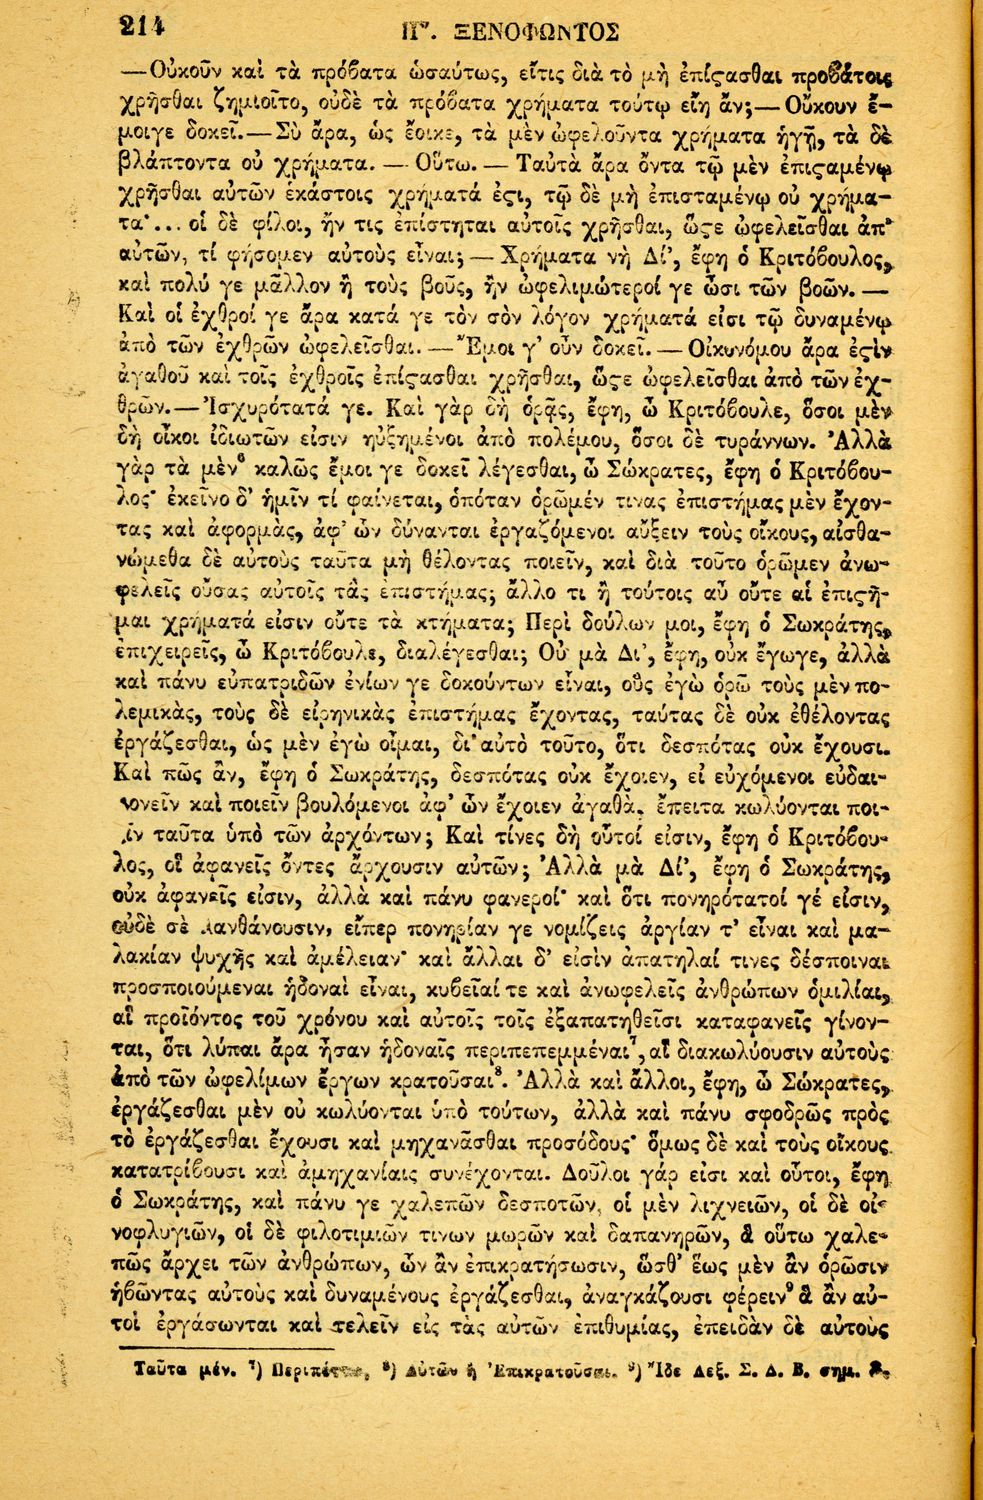 214
Π". ΞΕΝΟΦΩΝΤΟΣ
—Οὐκοῦν καὶ τὰ πρόβατα ὡσαύτως, εἴτις διὰ τὸ μὴ ἐπίςασθαι προβάτοις
χρῆσθαι ζημιοῖτο, οὐδὲ τὰ πρόβατα χρήματα τούτῳ εἴη ἄν;—Οὔκουν ἔ-
μοιγε δοκεῖ.—Σὺ ἄρα, ὡς ἔοικε, τὰ μὲν ὠφελοῦντα χρήματα ἡγῇ, τὰ δὲ
βλάπτοντα οὐ χρήματα. — Οὕτω. — Ταὐτὰ ἄρα ὄντα τῷ μὲν ἐπιςαμένῳ
χρῆσθαι αὐτῶν ἑκάστοις χρήματά ἐςι, τῷ δὲ μὴ ἐπισταμένῳ οὐ χρήμα-
τα·... οἱ δὲ φίλοι, ἤν τις ἐπίστηται αὐτοῖς χρῆσθαι, ὥςε ὠφελεῖσθαι ἀπ'
αὐτῶν, τί φήσομεν αὐτοὺς εἶναι; — Χρήματα νὴ Δί', ἔφη ὁ Κριτόβουλος,
καὶ πολύ γε μᾶλλον ἢ τοὺς βοῦς, ἢν ὠφελιμώτεροί γε ὦσι τῶν βοῶν. —
Καὶ οἱ ἐχθροί γε ἄρα κατά γε τὸν σὸν λόγον χρήματά εἰσι τῷ δυναμένῳ
ἀπὸ τῶν ἐχθρῶν ὠφελεῖσθαι. — Ἔμοι γ' οὖν δοκεῖ. — Οἰκονόμου ἄρα ἐςὶν
ἀγαθοῦ καὶ τοῖς ἐχθροῖς ἐπίςασθαι χρῆσθαι, ὥςε ὠφελεῖσθαι ἀπὸ τῶν ἐχ-
θρῶν.—Ἰσχυρότατά γε. Καὶ γὰρ δὴ ὁρᾷς, ἔφη, ὦ Κριτόβουλε, ὅσοι μὲν
δὴ οἶκοι ἰδιωτῶν εἰσιν ηὐξημένοι ἀπὸ πολέμου, ὅσοι δὲ τυράννων. Ἀλλὰ
γὰρ τὰ μὲν⁶ καλῶς ἔμοι γε δοκεῖ λέγεσθαι, ὦ Σώκρατες, ἔφη ὁ Κριτόβου-
λος· ἐκεῖνο δ' ἡμῖν τί φαίνεται, ὁπόταν ὁρῶμέν τινας ἐπιστήμας μὲν ἔχον-
τας καὶ ἀφορμὰς, ἀφ' ὧν δύνανται ἐργαζόμενοι αὔξειν τοὺς οἴκους, αἰσθα-
νώμεθα δὲ αὐτοὺς ταῦτα μὴ θέλοντας ποιεῖν, καὶ διὰ τοῦτο ὁρῶμεν ἀνω-
φελεῖς οὔσας αὐτοῖς τὰς ἐπιστήμας; ἄλλο τι ἢ τούτοις αὖ οὔτε αἱ ἐπιςῆ-
μαι χρήματά εἰσιν οὔτε τὰ κτήματα; Περὶ δούλων μοι, ἔφη ὁ Σωκράτης,
ἐπιχειρεῖς, ὦ Κριτόβουλε, διαλέγεσθαι; Οὐ μὰ Δί', ἔφη, οὐκ ἔγωγε, ἀλλὰ
καὶ πάνυ εὐπατριδῶν ἐνίων γε δοκούντων εἶναι, οὓς ἐγὼ ὁρῶ τοὺς μὲν πο-
λεμικὰς, τοὺς δὲ εἰρηνικὰς ἐπιστήμας ἔχοντας, ταύτας δὲ οὐκ ἐθέλοντας
ἐργάζεσθαι, ὡς μὲν ἐγὼ οἶμαι, δι' αὐτὸ τοῦτο, ὅτι δεσπότας οὐκ ἔχουσι.
Καὶ πῶς ἂν, ἔφη ὁ Σωκράτης, δεσπότας οὐκ ἔχοιεν, εἰ εὐχόμενοι εὐδαι-
μονεῖν καὶ ποιεῖν βουλόμενοι ἀφ' ὧν ἔχοιεν ἀγαθὰ, ἔπειτα κωλύονται ποι-
εῖν ταῦτα ὑπὸ τῶν ἀρχόντων; Καὶ τίνες δὴ οὗτοί εἰσιν, ἔφη ὁ Κριτόβου-
λος, οἳ ἀφανεῖς ὄντες ἄρχουσιν αὐτῶν; Ἀλλὰ μὰ Δί', ἔφη ὁ Σωκράτης,
οὐκ ἀφανεῖς εἰσιν, ἀλλὰ καὶ πάνυ φανεροί· καὶ ὅτι πονηρότατοί γέ εἰσιν,
οὐδὲ σὲ λανθάνουσιν, εἴπερ πονηρίαν γε νομίζεις ἀργίαν τ' εἶναι καὶ μα-
λακίαν ψυχῆς καὶ ἀμέλειαν· καὶ ἄλλαι δ' εἰσὶν ἀπατηλαί τινες δέσποιναι
προσποιούμεναι ἡδοναὶ εἶναι, κυβεῖαί τε καὶ ἀνωφελεῖς ἀνθρώπων ὁμιλίαι,
αἳ προϊόντος τοῦ χρόνου καὶ αὐτοῖς τοῖς ἐξαπατηθεῖσι καταφανεῖς γίνον-
ται, ὅτι λύπαι ἄρα ἦσαν ἡδοναῖς περιπεπεμμέναι⁷, αἳ διακωλύουσιν αὐτοὺς
ἀπὸ τῶν ὠφελίμων ἔργων κρατοῦσαι⁸. Ἀλλὰ καὶ ἄλλοι, ἔφη, ὦ Σώκρατες,
ἐργάζεσθαι μὲν οὐ κωλύονται ὑπὸ τούτων, ἀλλὰ καὶ πάνυ σφοδρῶς πρὸς
τὸ ἐργάζεσθαι ἔχουσι καὶ μηχανᾶσθαι προσόδους· ὅμως δὲ καὶ τοὺς οἴκους
κατατρίβουσι καὶ ἀμηχανίαις συνέχονται. Δοῦλοι γάρ εἰσι καὶ οὗτοι, ἔφη
ὁ Σωκράτης, καὶ πάνυ γε χαλεπῶν δεσποτῶν, οἱ μὲν λιχνειῶν, οἱ δὲ οἰ-
νοφλυγιῶν, οἱ δὲ φιλοτιμιῶν τινων μωρῶν καὶ δαπανηρῶν, ἃ οὕτω χαλε-
πῶς ἄρχει τῶν ἀνθρώπων, ὧν ἂν ἐπικρατήσωσιν, ὥσθ' ἕως μὲν ἂν ὁρῶσιν
ἡβῶντας αὐτοὺς καὶ δυναμένους ἐργάζεσθαι, ἀναγκάζουσι φέρειν⁹ ἃ ἂν αὐ-
τοὶ ἐργάσωνται καὶ τελεῖν εἰς τὰς αὐτῶν ἐπιθυμίας, ἐπειδὰν δὲ αὐτοὺς
Ταῦτα μέν. ⁷) ⁸) Αὐτῶν ἡ Ἐπικρατοῦσαι. ⁹) Ἴδε Λεξ. Σ. Δ. Β. σημ.